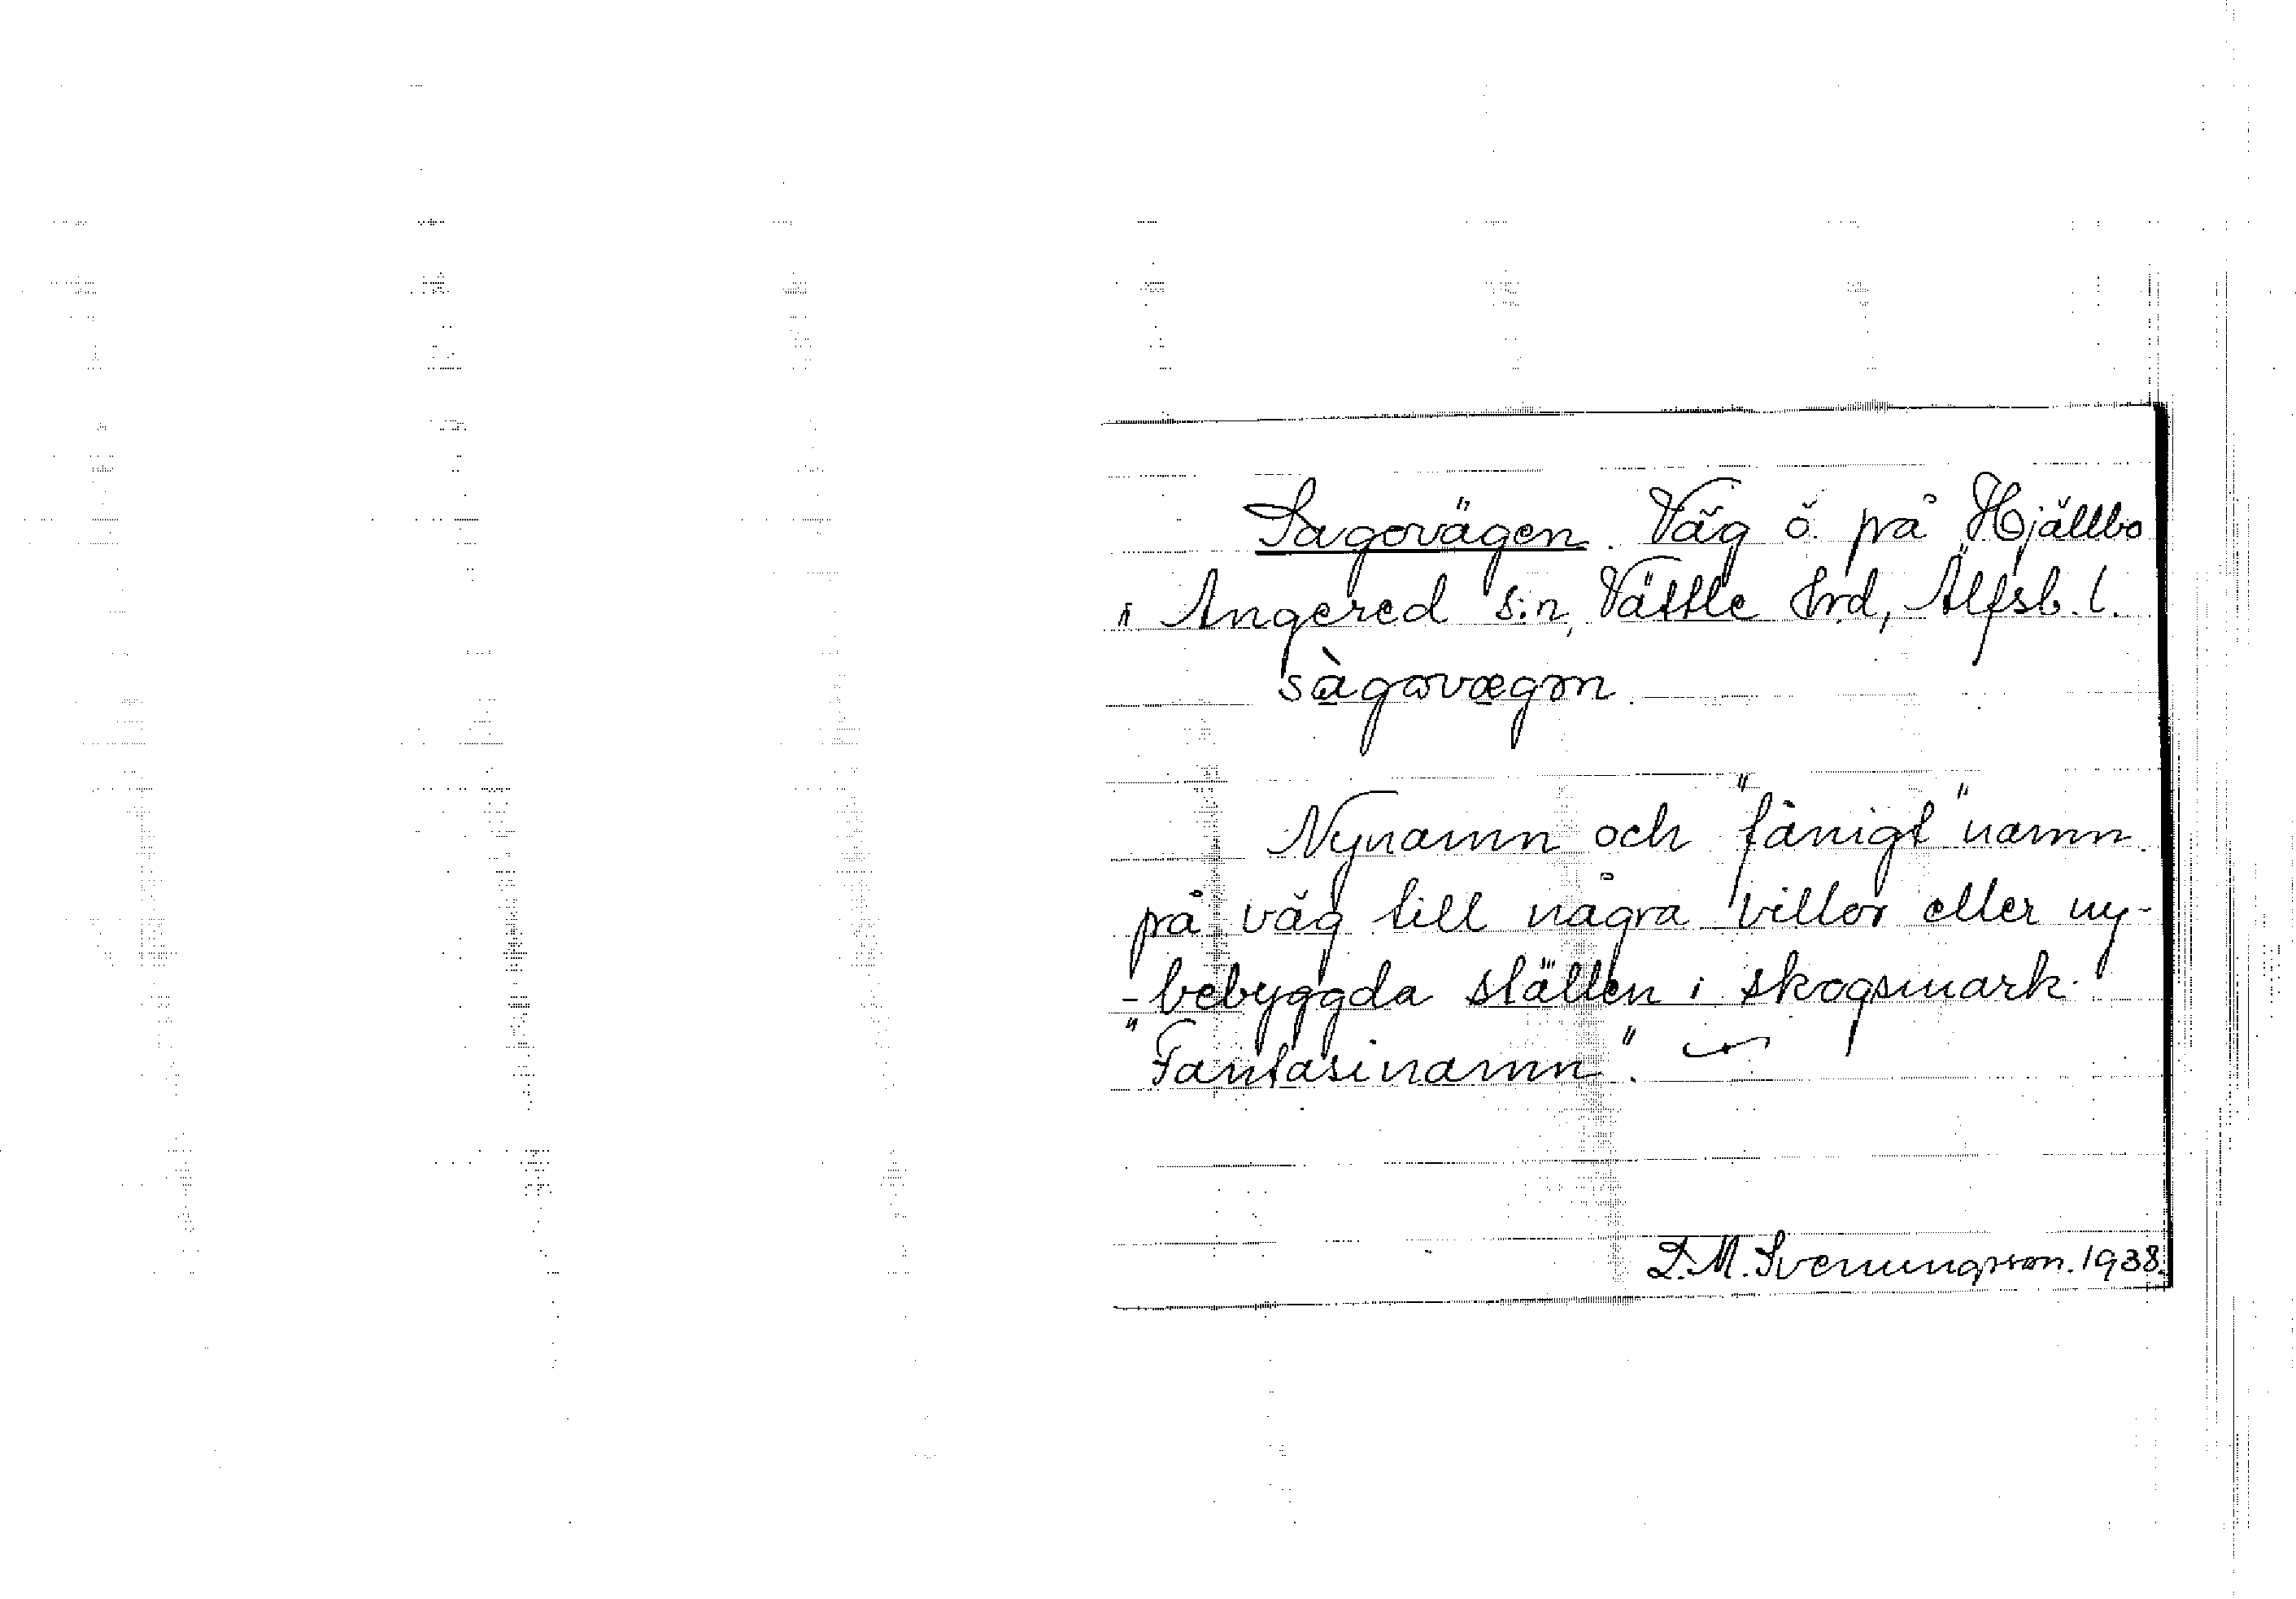 Sagovägen. Väg ö. på Hjällbo
i Angered s:n, Vättle hrd, Älfsb. l.
sàgovægən.
Nynamn och "fånigt" namn
på väg till några villor eller ny-
-bebyggda ställen i skogsmark.
"Fantasinamn".
D. M. Svenungsson. 1938.